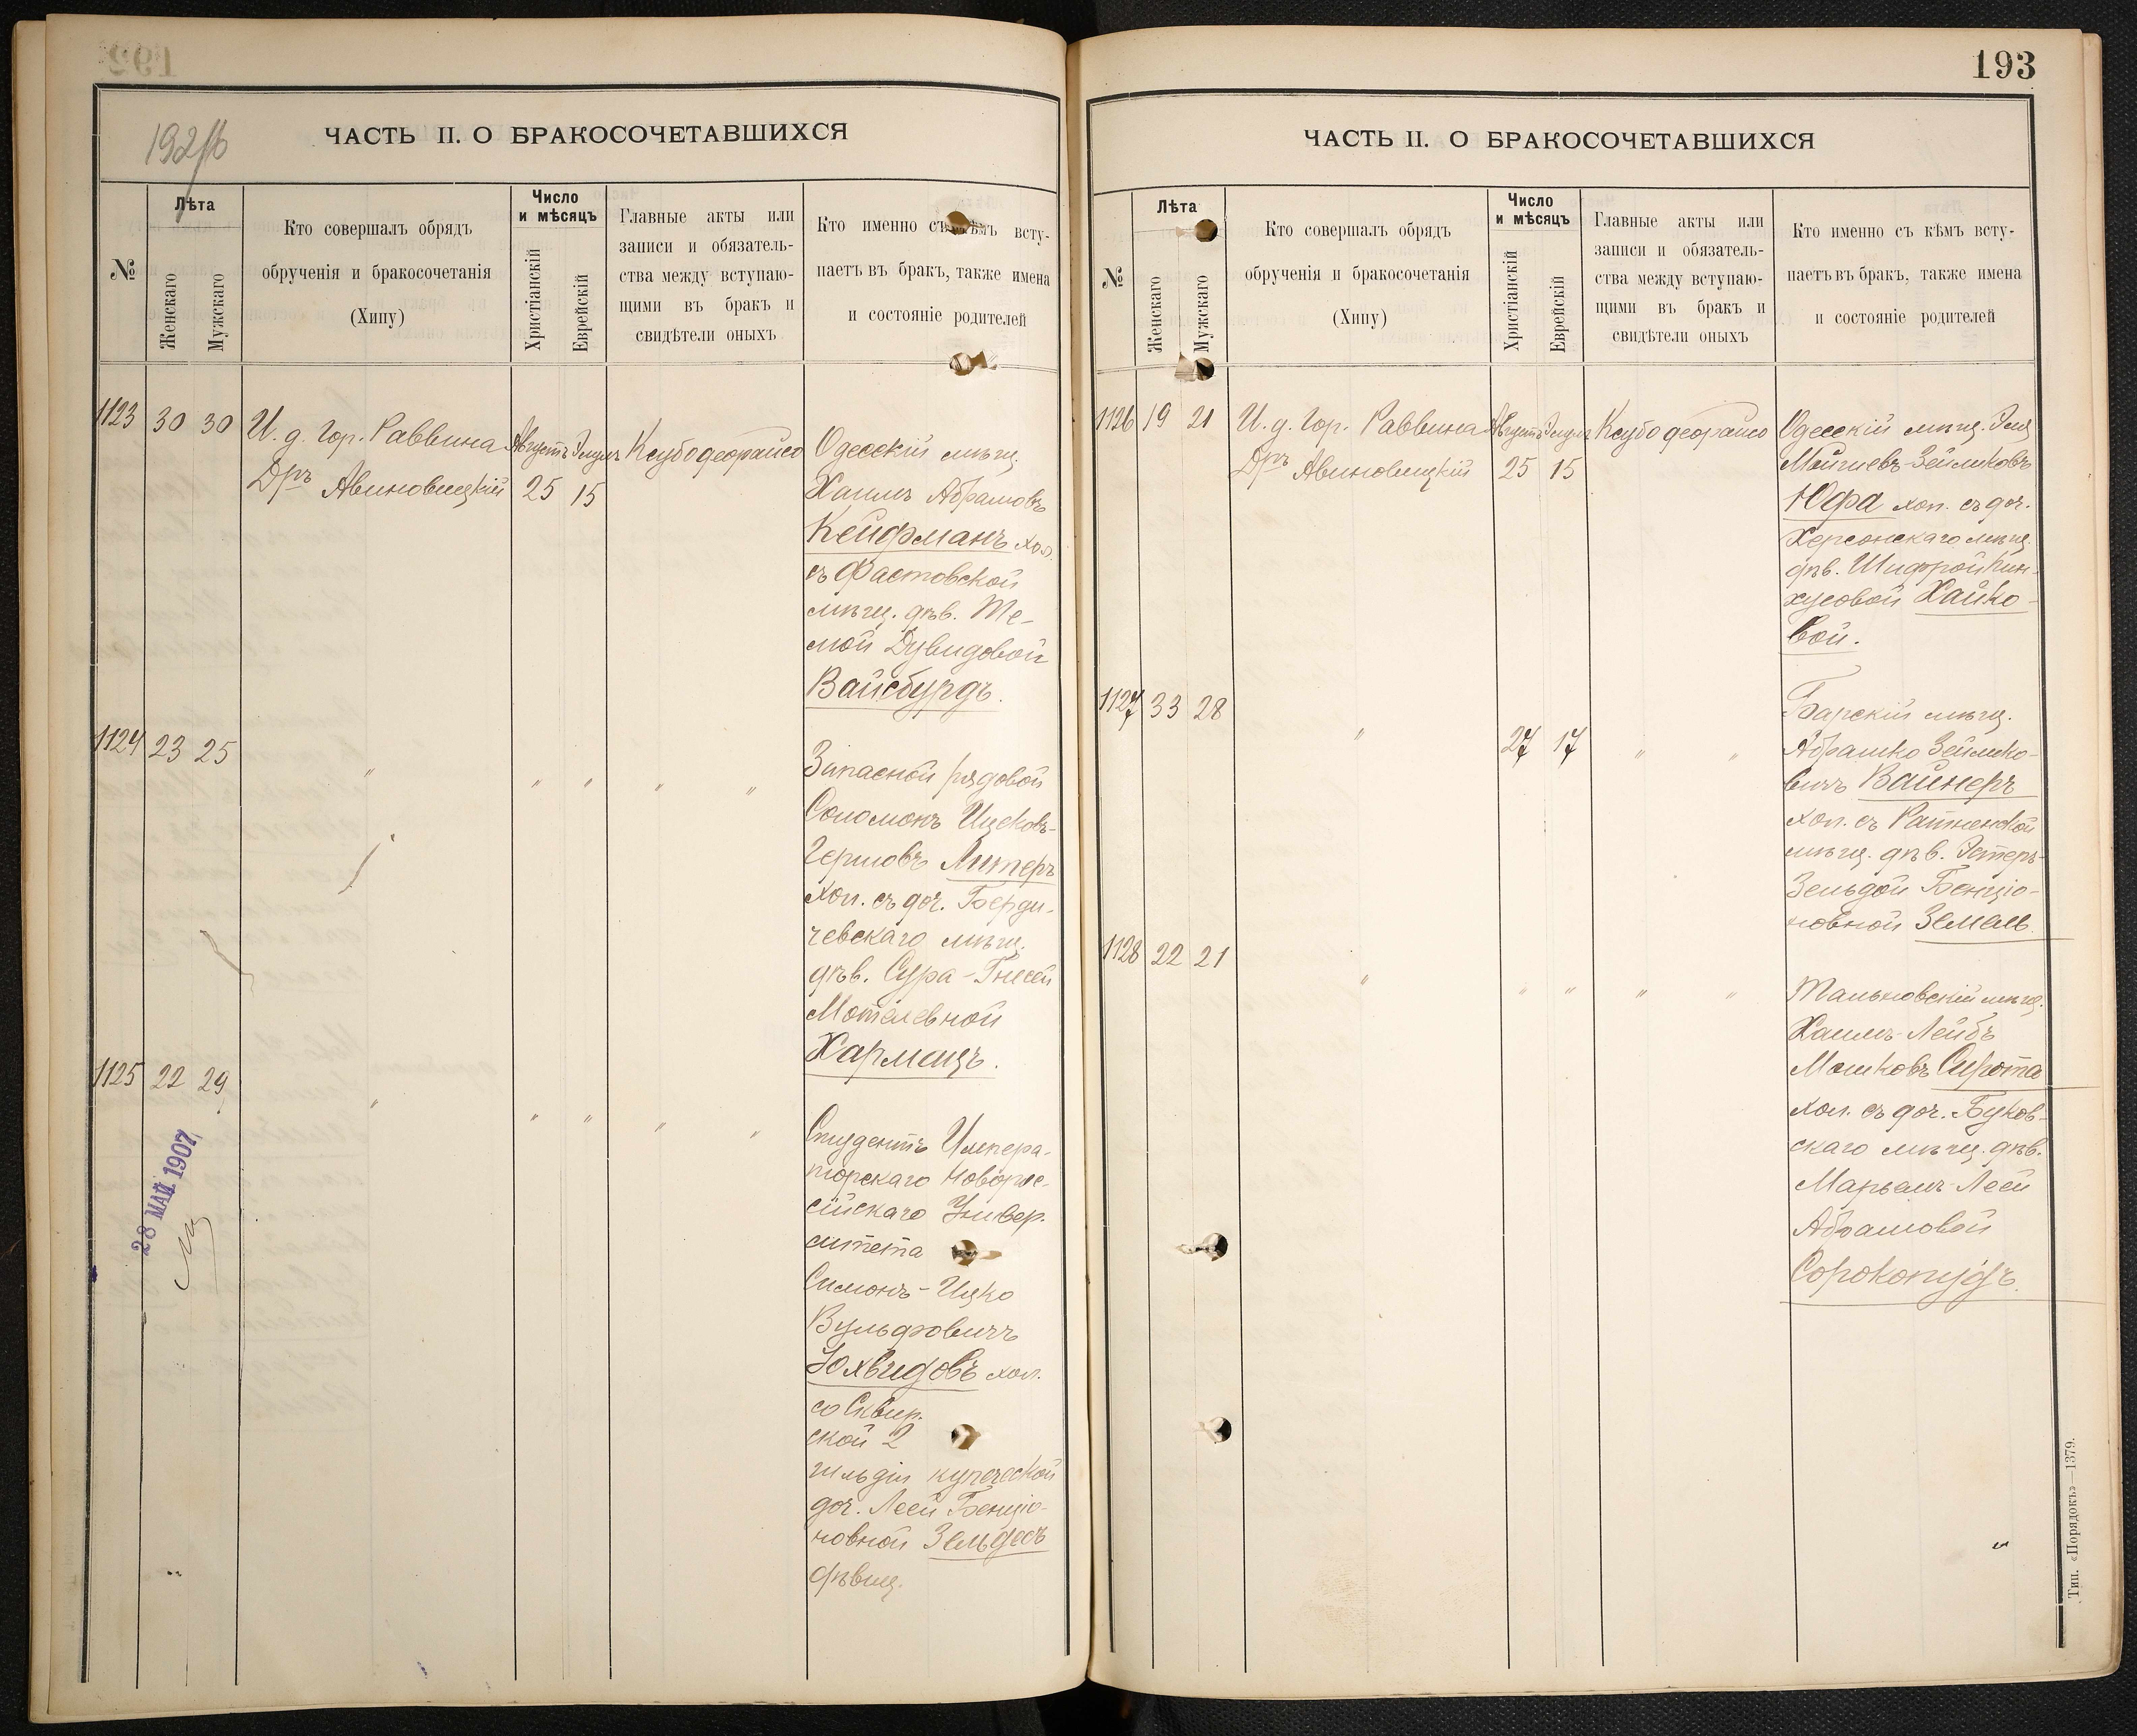 192/б
ЧАСТЬ II. О БРАКОСОЧЕТАВШИХСЯ
№
Лѣта
Женскаго
Мужскаго
Кто совершалъ обрядъ
обрученія и бракосочетанія
(Хипу)
Число
и мѣсяцъ
Христіанскій
Еврейскій
Главные акты или
записи и обязатель-
ства между вступаю-
щими въ бракъ и
свидѣтели оныхъ
Кто именно съ кѣмъ всту-
паетъ въ бракъ, также имена
и состояніе родителей
1123 30 30
И. д. Гор. Раввина
Дръ Авиновицкій
Августъ Элулъ
25 15
Ксубодеорайсо
Одесскій мѣщ.
Хаимъ Абрамовъ
Кейфманъ хол.
съ Фастовской
мѣщ. дѣв. Те-
мой Дувидовой
Вайсбурдъ.
1124 23 25
" " " " "
Запасной рядовой
Соломонъ Ицковъ-
Гершовъ Литеръ
хол. съ доч. Берди-
чевскаго мѣщ.
дѣв. Сура-Гнесей
Мотелевной
Хармацъ.
1125 22 29
" " " " "
28 МАЙ 1907
Студентъ Импера-
торскаго Новорос-
сійскаго Универ-
ситета
Симонъ-Ицко
Вульфовичъ
Юхвидовъ хол.
со Сквир-
ской 2
гильдіи купеческой
доч. Леей Бенціо-
новной Зельдесъ
дѣвиц.
193
ЧАСТЬ II. О БРАКОСОЧЕТАВШИХСЯ
№
Лѣта
Женскаго
Мужскаго
Кто совершалъ обрядъ
обрученія и бракосочетанія
(Хипу)
Число
и мѣсяцъ
Христіанскій
Еврейскій
Главные акты или
записи и обязатель-
ства между вступаю-
щими въ бракъ и
свидѣтели оныхъ
Кто именно съ кѣмъ всту-
паетъ въ бракъ, также имена
и состояніе родителей
1126 19 21
И. д. Гор. Раввина
Дръ Авиновицкій
Августъ Элулъ
25 15
Ксубодеорайсо
Одесскій мѣщ. Эля
Мойшевъ-Зейликовъ
Юфа хол. съ доч.
Херсонскаго мѣщ.
дѣв. Шифрой Пин-
хусовой Хайко-
вой.
1127 33 28
"
27 17
" "
Барскій мѣщ.
Абрамко Зейлико-
вичъ Вайнеръ
хол. съ Ратненской
мѣщ. дѣв. Эстеръ-
Зельдой Бенціо-
новной Земель.
1128 22 21
" " " " "
Тальновскій мѣщ.
Хаимъ-Лейбъ
Мошковъ Сирота
хол. съ доч. Буков-
скаго мѣщ. дѣв.
Марьемъ-Леей
Абрамовой
Сорокопудъ.
Тип. «Порядокъ»—1379.